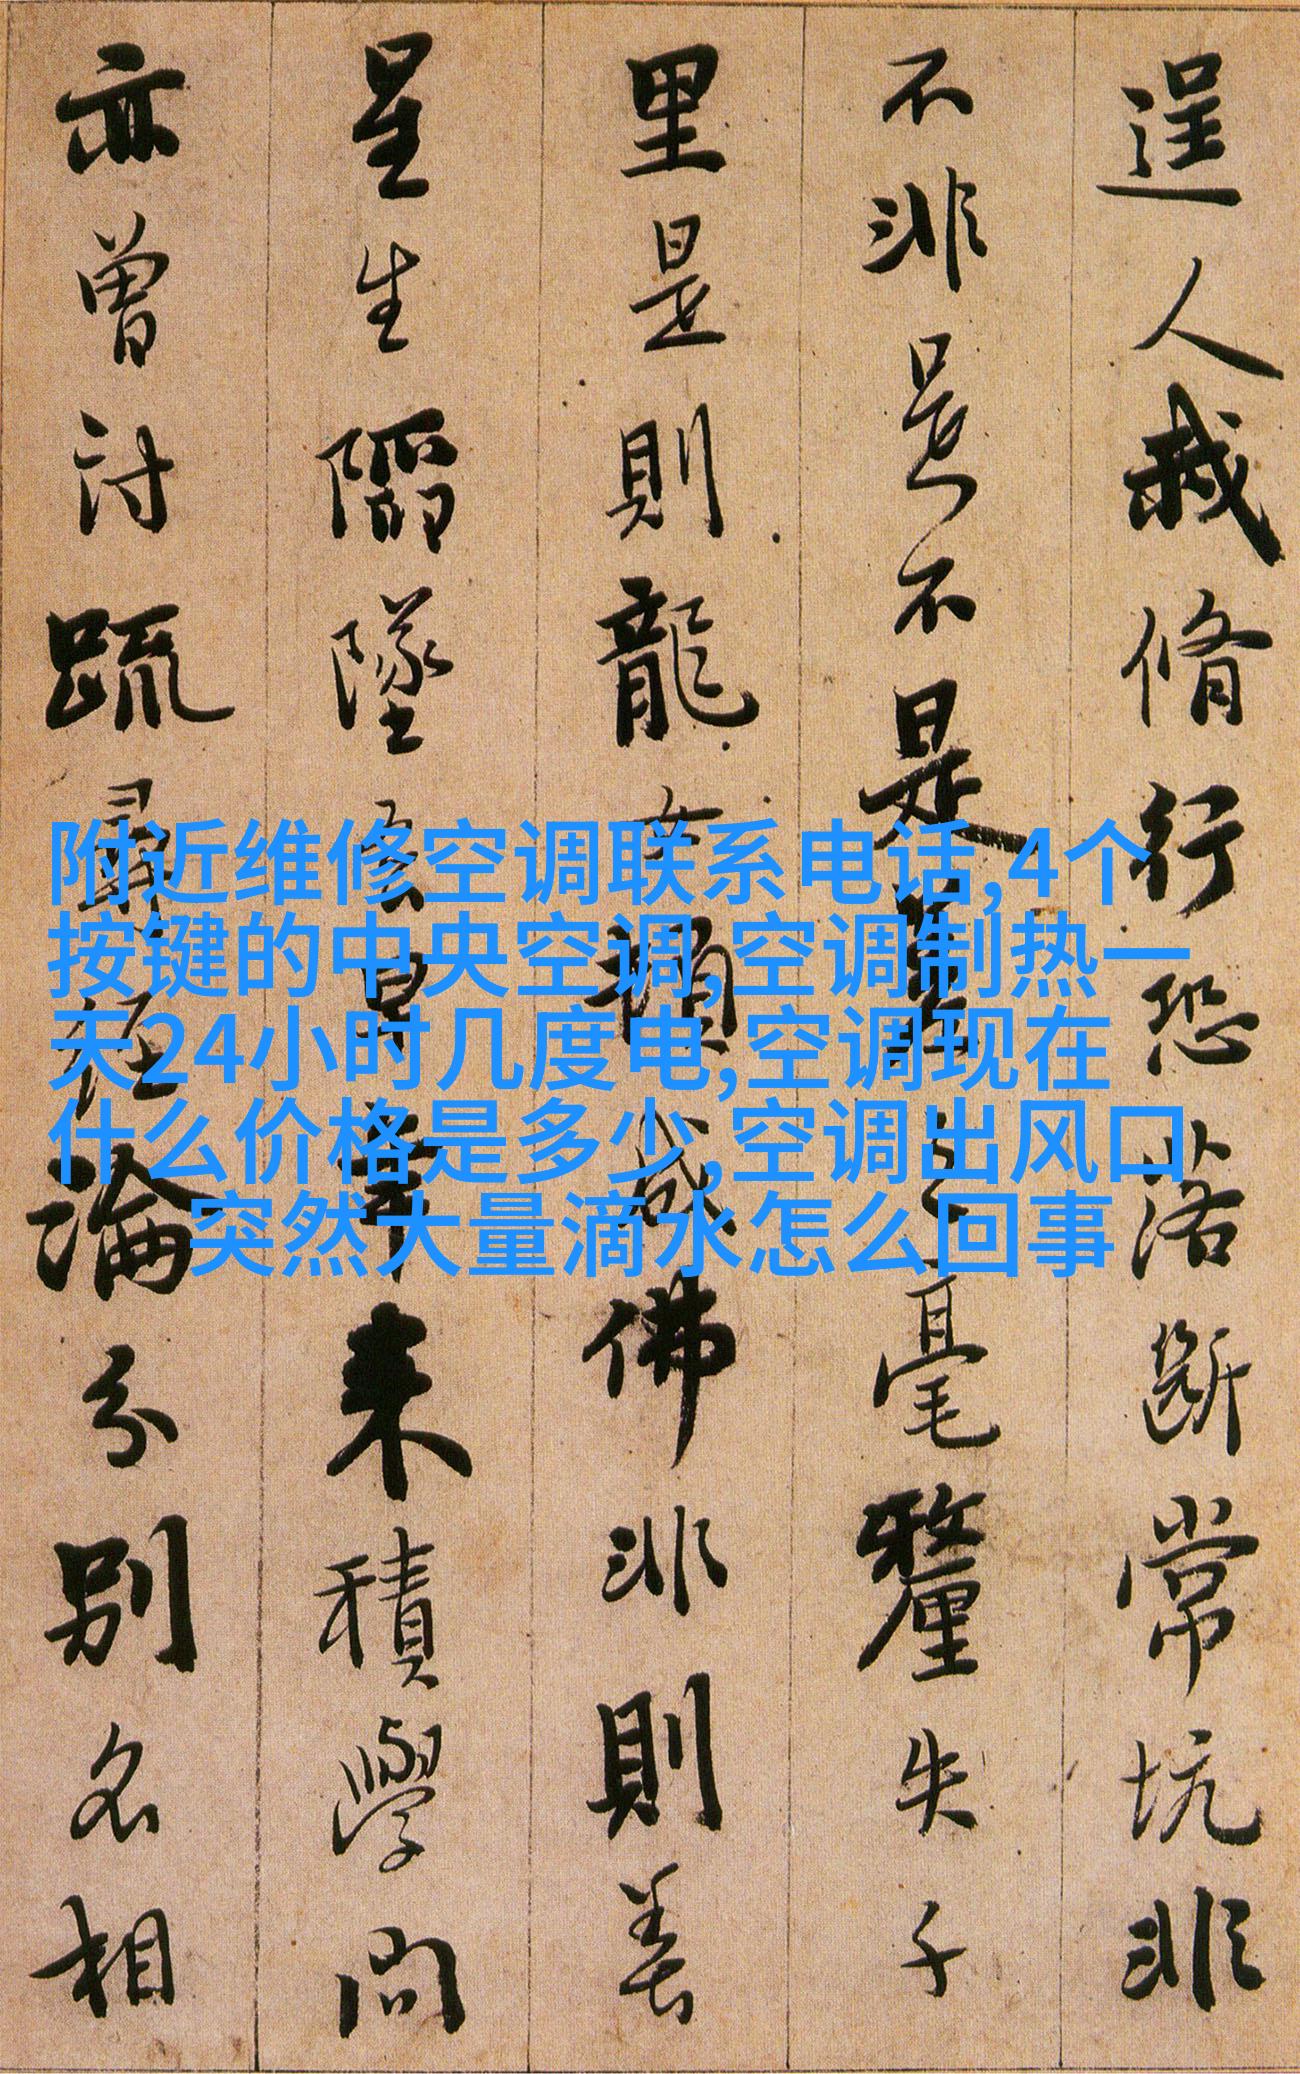 逞人我脩行恐落斷常坑非
不非是不是差之毫釐失千
里是則龍女頓成佛非則善
星生陷墜吾早年来積學問
亦曽討疏尋経論分别名相
附近维修空调联系电话,4个
按键的中央空调,空调制热一
天24小时几度电,空调现在
什么价格是多少,空调出风口
突然大量滴水怎么回事